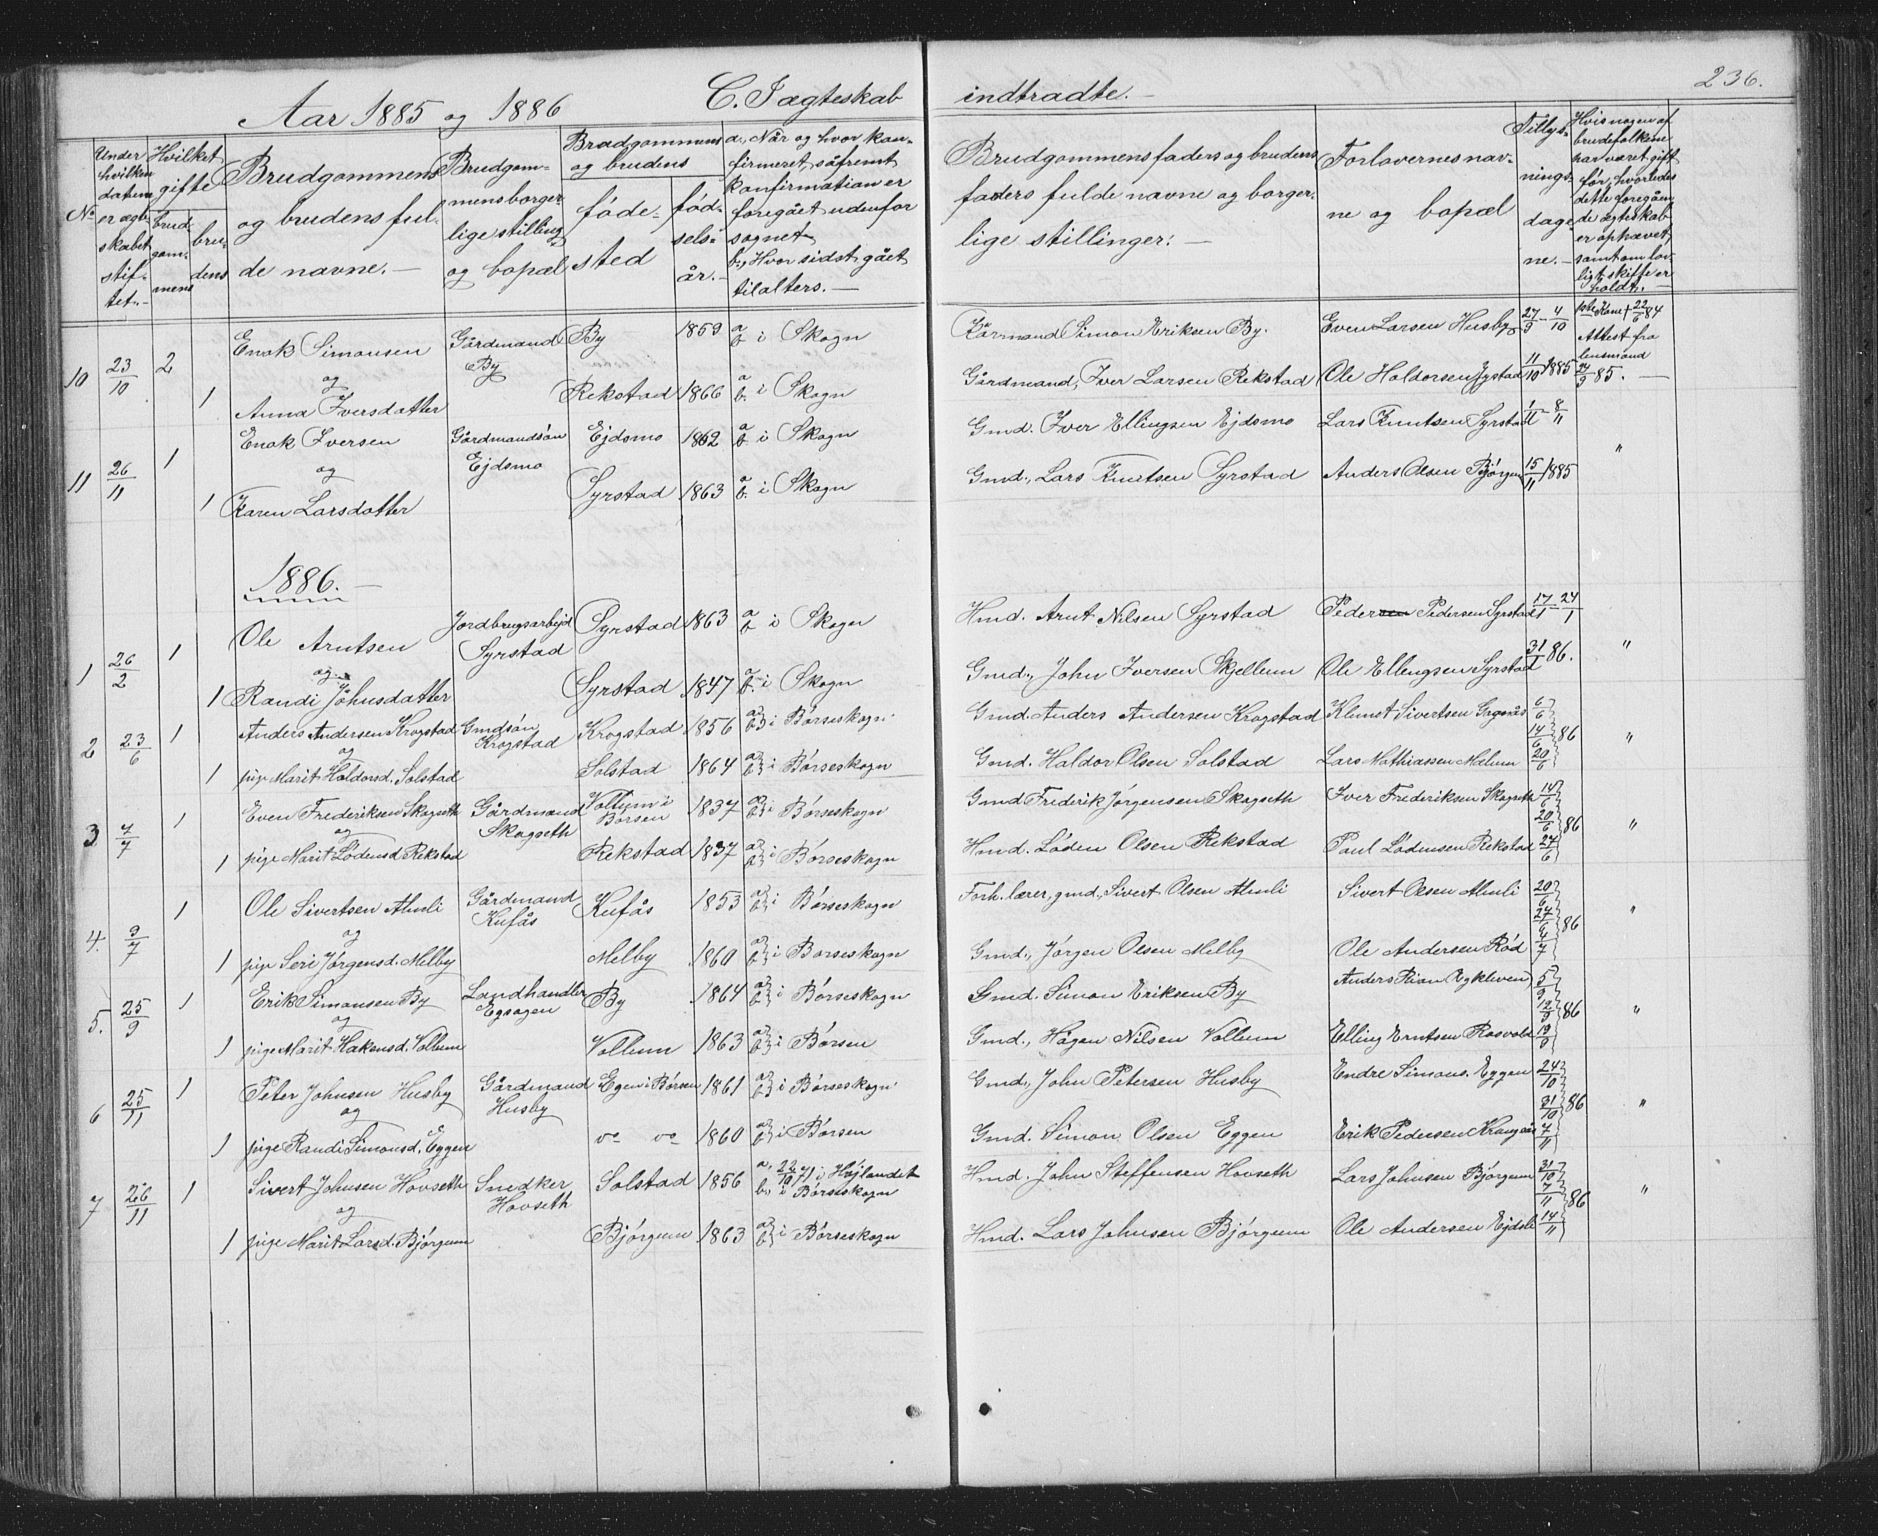 236.
Aar 1885 og 1886 C. I ægteskab indtrådte.
No
Under hvilken datum er ægteskabet stiftet.
Hvilket gifte
brudgommens
brudens
Brudgommens og brudens fulde navne.
Brudgommens borgerlige stilling og bopæl
Brudgommens og brudens
fødested
fødselsår.
a, Når og hvor konfirmeret, såfremt konfirmation er foregået udenfor sognet
b., Hvor sidst gået til alters.
Brudgommens faders og brudens faders fulde navne og borgerlige stillinger:
Forlovernes navne og bopæl
Tillysningsdagene.
Hvis nogen af brudefolkene har været gift før, hvorledes dette foregående ægteskab er ophævet, samt om lovligt skifte er holdt.
10 23/10 2 Enok Simonsen Gårdmand By By 1859 a b i Skogn Kårmand Simon Eriksen By. Even Larsen Husby 27/9 - 4/10 1ste Kone † 22/6 84
og
1 Anna Iversdatter Rekstad 1866 a b. i Skogn Gårdmand, Iver Larsen Rekstad Ole Haldorsen 11/10 1885 Attest fra lensmand 24/9 85.
11 26/11 1 Enok Iversen Gårdmandsøn Ejdsmo Ejdsmo 1862 a b i Skogn Gmd. Iver Ellingsen Ejdsmo Lars Knutsen Syrstad 1/11 - 8/11
og
1 Karen Larsdatter Syrstad 1863 a b. i Skogn Gmd., Lars Knutsen Syrstad Anders Olsen Bjørgum 15/11 1885 "
1886.
1 26/2 1 Ole Arntsen Jordbrugsarbejd Syrstad Syrstad 1863 a b i Skogn Hmd. Arnt Nilsen Syrstad Peder Pedersen Syrstad 17/1 - 24/1
og
1 Randi Johnsdatter Syrstad 1847 a b. i Skogn Gmd., John Iversen Skjellum Ole Ellingsen Syrstad 31/1 86. "
2 23/6 1 Anders Andersen Krogstad Gmdsøn Krogstad Krogstad 1856 a b i Børseskogn Gmd. Anders Andersen Krogstad Sivertsen 6/6
og
1 pige Marit Haldorsd. Solstad Solstad 1864 a b i Børseskogn Gmd. Haldor Olsen Solstad Lars Mathiassen Mælum 14/6 20/6 86 "
3 4/7 1 Even Frederiksen Skogseth Gårdmand Skogseth Vollum i Børsen 1837 a b i Børseskogn Gmd Frederik Jørgensen Skogseth Iver Frederiksen Skogseth 14/6
og
1 pige Marit Lødensd. Rekstad Rekstad 1837 a b i Børseskogn Hmd. Løden Olsen Rekstad Paul Lødensen Rekstad 20/6 27/6 86 "
4. 9/7 1 Ole Sivertsen Almli Gårdmand Kufås Kufås 1853 a b i Børseskogn Forh. lærer, gmd., Sivert Olsen Almli Sivert Olsen Almli 20/6
og
1 pige Seri Jørgensd. Melby Melby 1860 a b i Børseskogn Gmd., Jørgen Olsen Melby Ole Andersen Rød 27/6 4/7 86 "
5. 25/9 1 Erik Simonsen By Landhandler By 1864 a b i Børseskogn Gmd. Simon Eriksen By Anders 5/9
og
1 pige Marit Hakensd. Vollum Vollum 1863 a b i Børsen Gmd., Hågen Nilsen Vollum Elling Arntsen Rosvold 12/9 19/9 86 "
6 25/11 1 Peter Johnsen Husby Gårdmand Husby Egen i Børsen 1861 a b i Børseskogn Gmd., John Petersen Husby Endre Simons. Eggen 24/10
og
1 pige Randi Simonsd. Eggen 1860 a b i Børsen Gmd. Simon Olsen Eggen Erik Pedersen 31/10 7/11 86 "
7 26/11 1 Sivert Johnsen Hovseth Snedker Hovseth Solstad 1856 a, 22/10 71 i Højlandet b., i Børseskogn Hmd. John Steffensen Hovseth Lars Johnsen Bjørgum 31/10
og
1 pige Marit Larsd. Bjørgum Bjørgum 1863 a b i Børseskogn Hmd. Lars Johnsen Bjørgum Ole Andersen Ejdsli 7/11 14/11 86 "